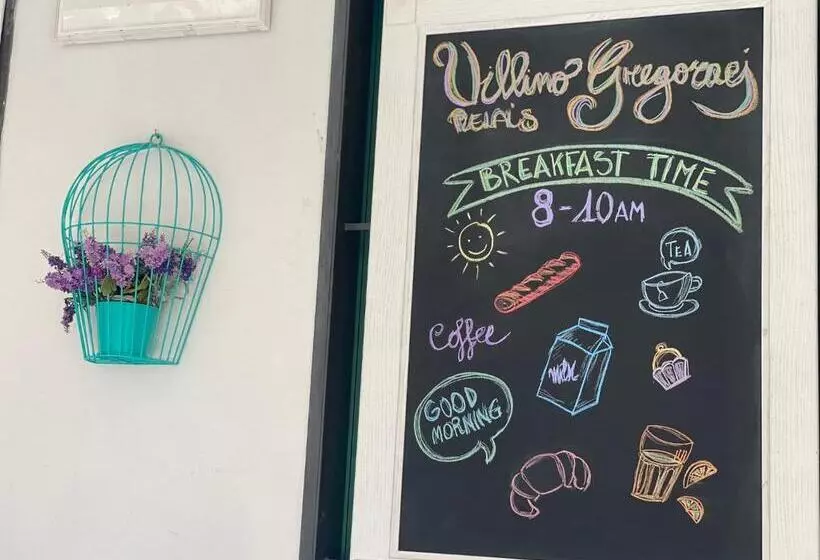 Villino Gregoraci
RELAIS
BREAKFAST TIME
8-10AM
TEA
Coffee
Milk
GOOD
MORNING